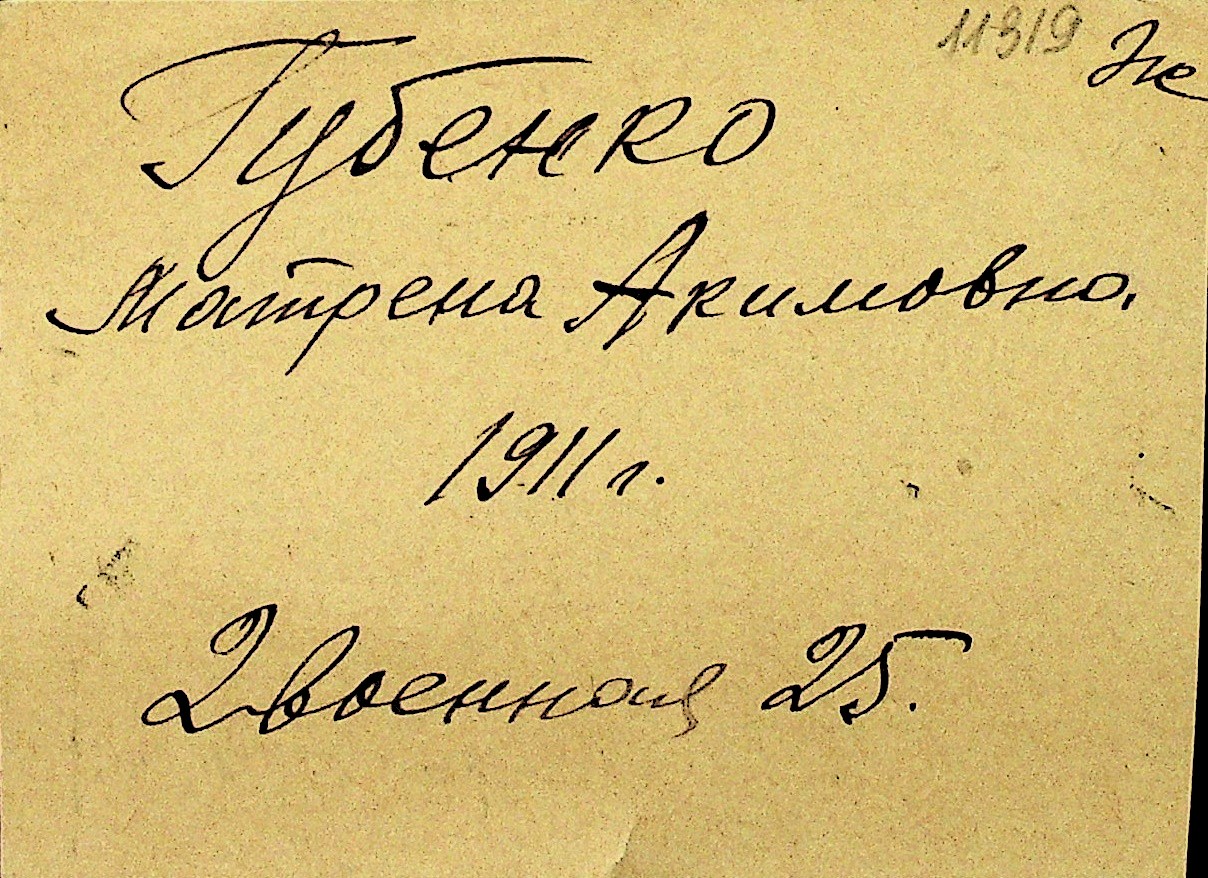 11319
Губенко
Матрена Акимовна.
1911 г.
2 военная 25.